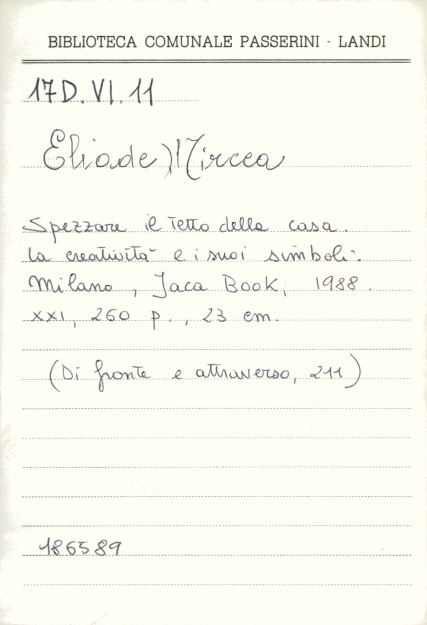 BIBLIOTECA COMUNALE PASSERINI - LANDI
17D.VI.11
Eliade, Mircea
Spezzare il tetto della casa.
La creatività e i suoi simboli.
Milano, Jaca Book, 1988.
XXI, 260 p., 23 cm.
(Di fronte e attraverso, 211)
186589